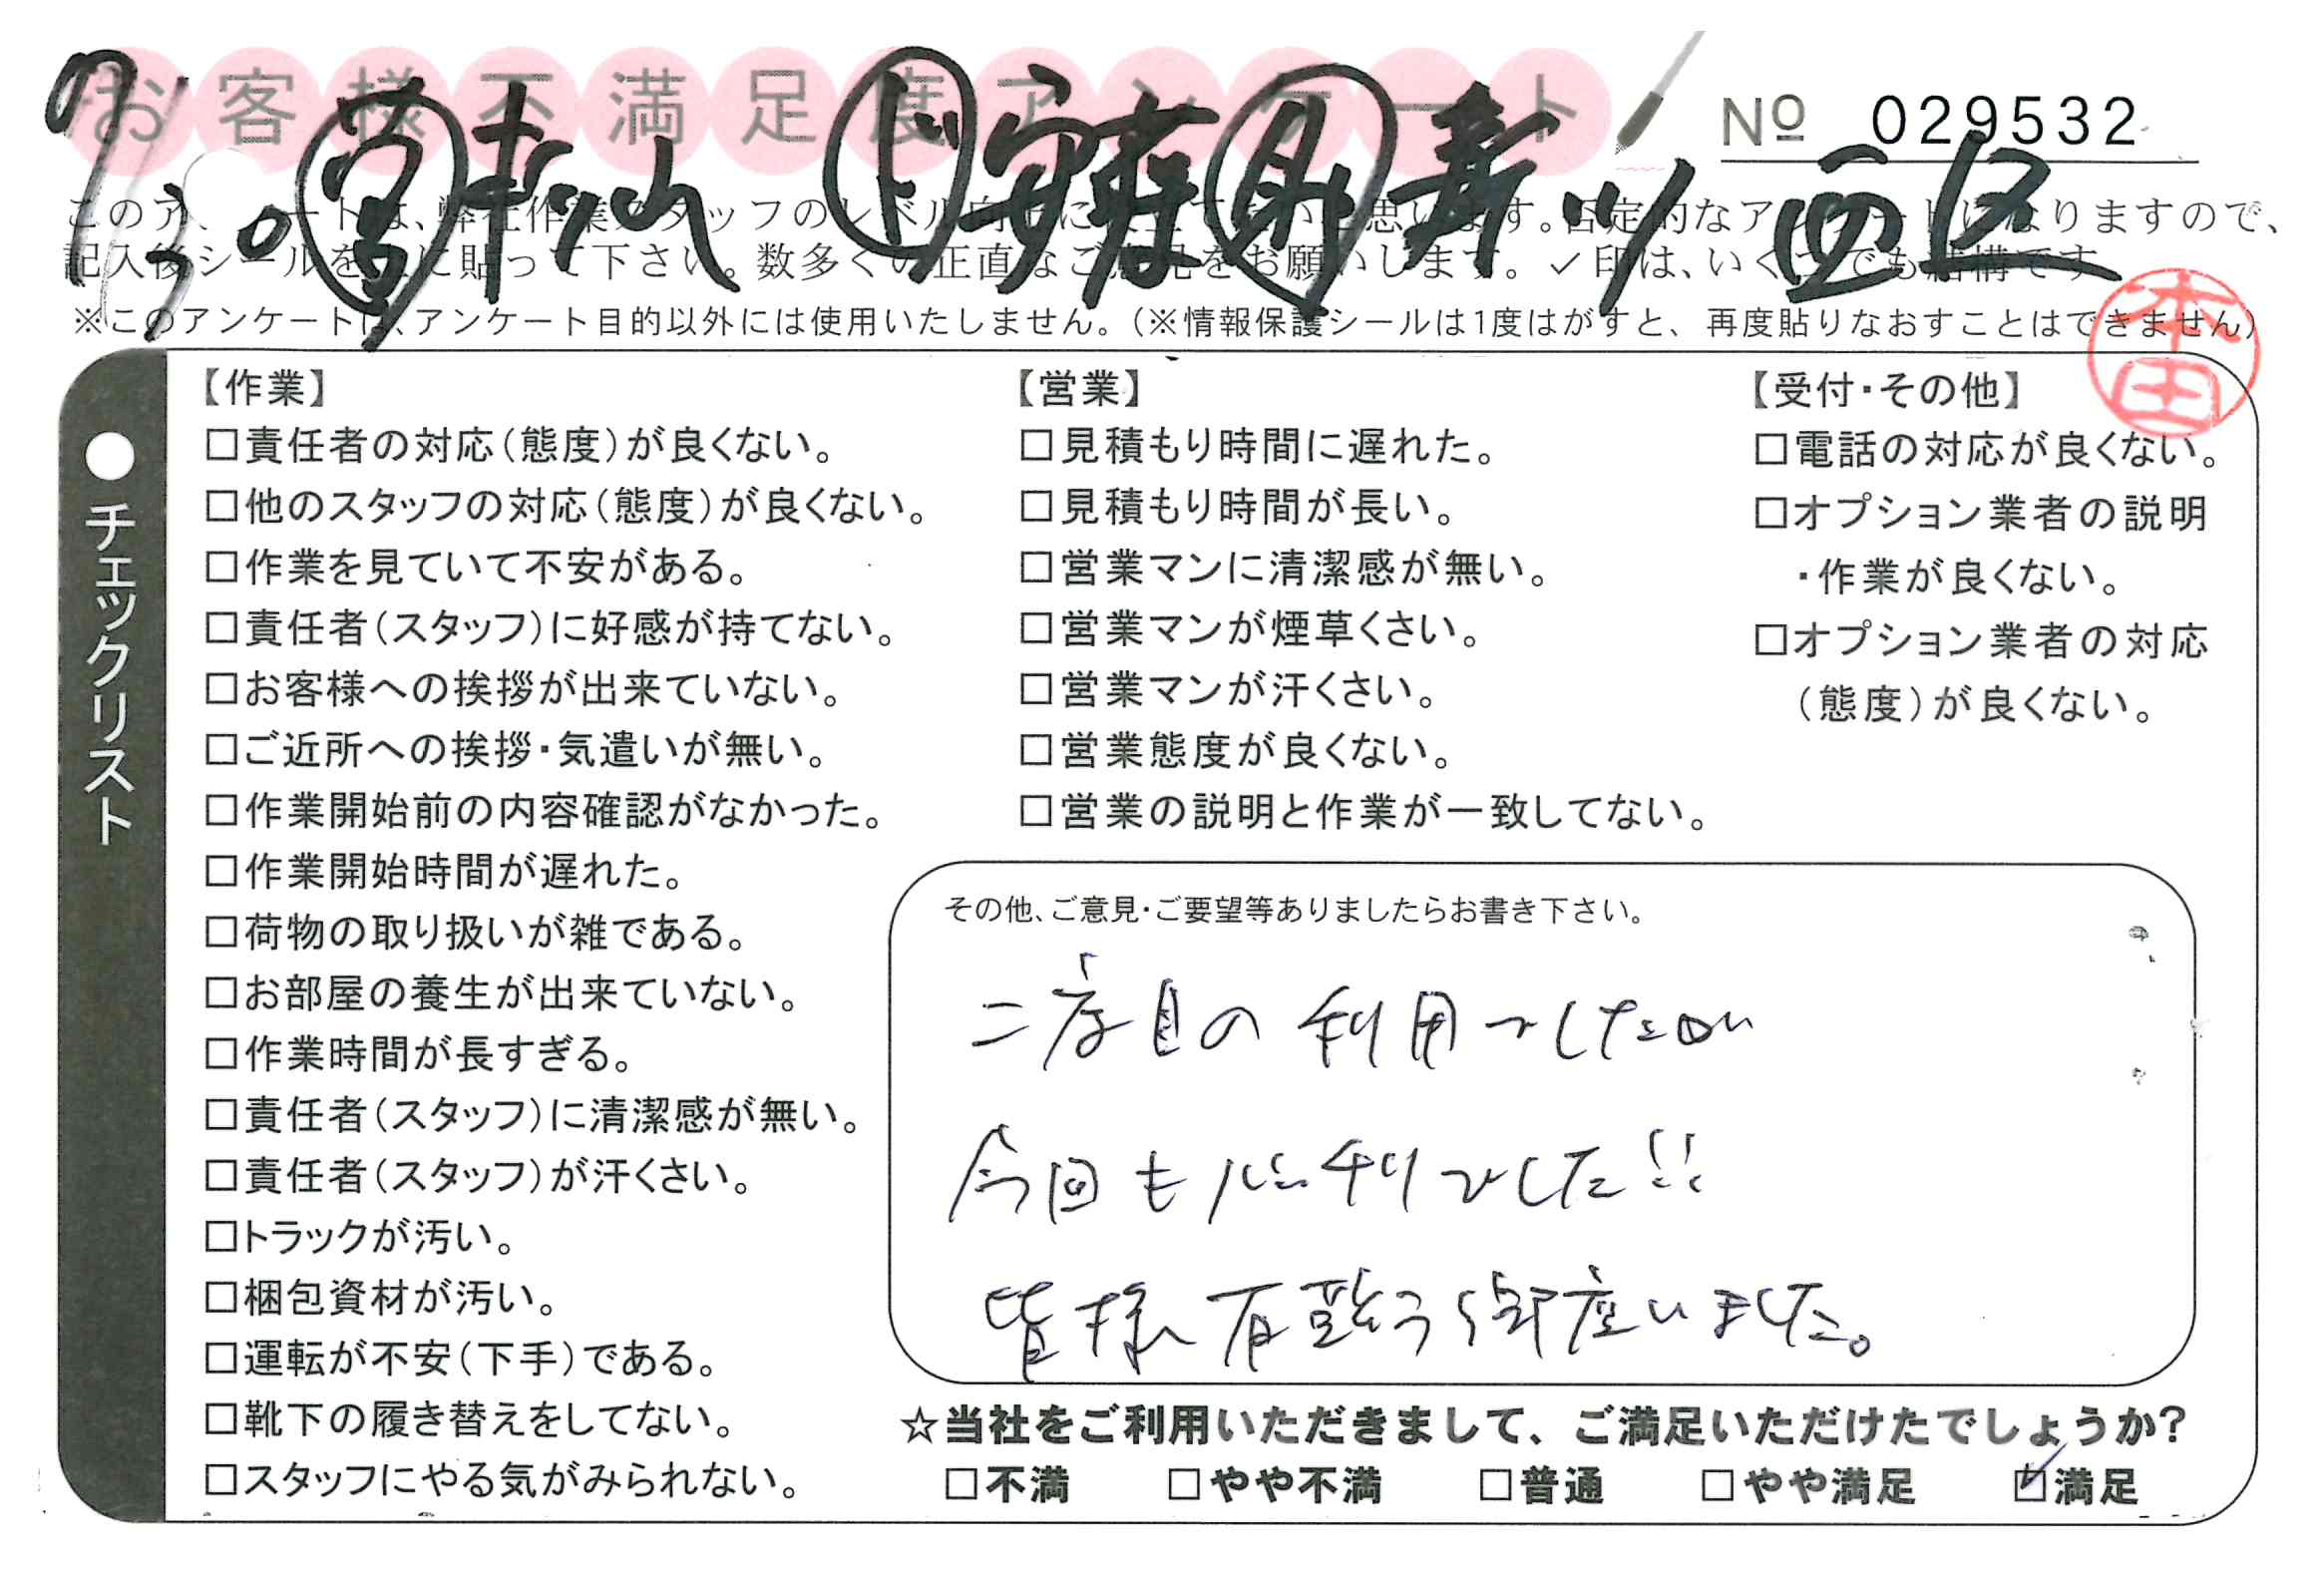 お客様不満足度アンケート
№ 029532
7/30 営 杣山 ド 安藤 助 西区
このアンケートは、弊社作業スタッフのレベル向上に役立てたいと思います。否定的なアンケートになりますので、
記入後シールを上に貼って下さい。数多くの正直なご意見をお願いします。✓印は、いくつでも結構です
※このアンケートは、アンケート目的以外には使用いたしません。(※情報保護シールは1度はがすと、再度貼りなおすことはできません)
本田
●チェックリスト
【作業】
□責任者の対応(態度)が良くない。
□他のスタッフの対応(態度)が良くない。
□作業を見ていて不安がある。
□責任者(スタッフ)に好感が持てない。
□お客様への挨拶が出来ていない。
□ご近所への挨拶・気遣いが無い。
□作業開始前の内容確認がなかった。
□作業開始時間が遅れた。
□荷物の取り扱いが雑である。
□お部屋の養生が出来ていない。
□作業時間が長すぎる。
□責任者(スタッフ)に清潔感が無い。
□責任者(スタッフ)が汗くさい。
□トラックが汚い。
□梱包資材が汚い。
□運転が不安(下手)である。
□靴下の履き替えをしてない。
□スタッフにやる気がみられない。
【営業】
□見積もり時間に遅れた。
□見積もり時間が長い。
□営業マンに清潔感が無い。
□営業マンが煙草くさい。
□営業マンが汗くさい。
□営業態度が良くない。
□営業の説明と作業が一致してない。
【受付・その他】
□電話の対応が良くない。
□オプション業者の説明
・作業が良くない。
□オプション業者の対応
(態度)が良くない。
その他、ご意見・ご要望等ありましたらお書き下さい。
二度目の利用でしたが
今回も バッチリでした!!
皆様有難う御座いました。
☆当社をご利用いただきまして、ご満足いただけたでしょうか?
□不満 □やや不満 □普通 □やや満足 ☑満足